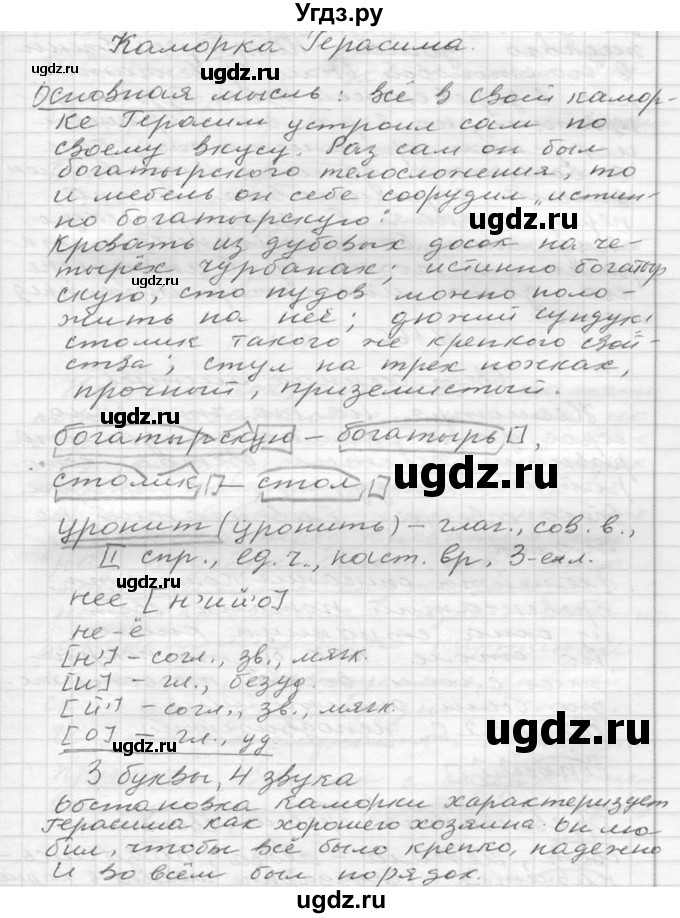 Угдз.ру
Каморка Герасима.
Основная мысль: всё в своей камор-
ке Герасим устроил сам по
своему вкусу. Раз сам он был
богатырского телосложения, то
и мебель он себе соорудил „истин-
но богатырскую:
кровать из дубовых досок на че-
тырёх чурбанах; истинно богатыр
скую; сто пудов можно поло-
жить на неё; дюжий сундук;
столик такого же крепкого свой-
ства; стул на трёх ножках,
прочный, приземистый.
богатырскую – богатырь,
столик – стол
уронит (уронить) – глаг., сов. в.,
II спр., ед. ч., наст. вр, 3-е л.
неё [н'ий'о]
не-ё
[н'] – согл., зв., мягк.
[и] – гл., безуд.
[й'] – согл., зв., мягк.
[о] – гл., уд
3 буквы, 4 звука
Обстановка каморки характеризует
Герасима как хорошего хозяина. Он лю
бил, чтобы всё было крепко, надёжно
и во всём был порядок.
ugdz.ru
ugdz.ru
ugdz.ru
ugdz.ru
ugdz.ru
ugdz.ru
ugdz.ru
ugdz.ru
ugdz.ru
ugdz.ru